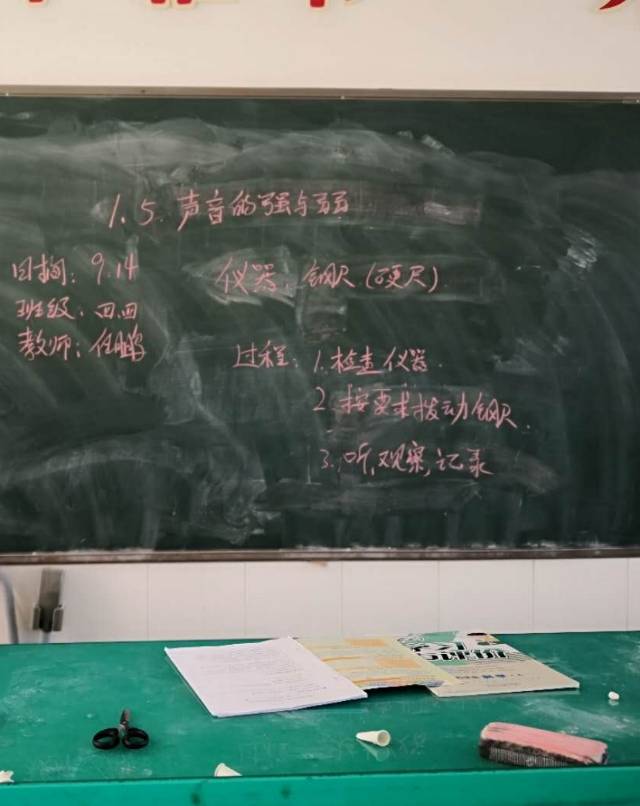 1.5 声音的强与弱
时间: 9.14
班级: 四四
教师: 任鹏
仪器: 钢尺(硬尺)
过程: 1.检查仪器.
2.按要求拨动钢尺.
3.听,观察,记录